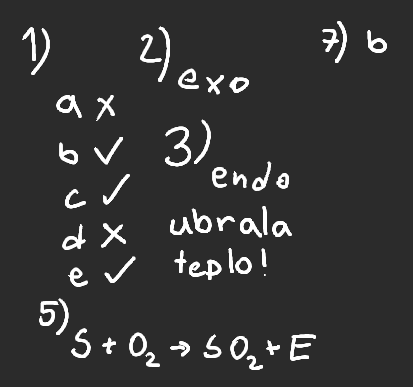 1)
a x
b ✓
c ✓
d x
e ✓
2)
exo
3)
endo
ubrala
teplo!
5)
S + O₂ → SO₂ + E
7) b